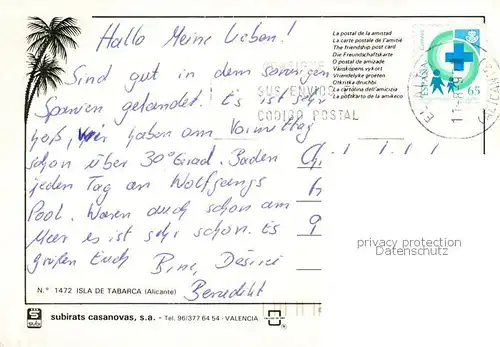 Hallo Meine Lieben!
Sind gut in dem sonnigen
Spanien gelandet. Es ist sehr
heiß, wir haben am Vormittag
schon über 30° Grad. Baden
jeden Tag an Wolfgangs
Pool. Waren auch schon am
Meer es ist sehr schön. Es
grüßen Euch Bine, Desirée
Benedikt
La postal de la amistad
La carte postale de l'amitié
The friendship post card
Die Freundschaftskarte
O postal de amizade
Vänskapens vykort
Vriendelyke groeten
Otkritka druchbi
La cartolina dell'amicizia
La poŝtkarto de la amikeco
CONSIGNE
SUS ENVIOS
CODIGO POSTAL
ESPAÑA
65
privacy protection
Datenschutz
N.° 1472 ISLA DE TABARCA (Alicante)
subirats casanovas, s.a. - Tel. 96/377 64 54 - VALENCIA